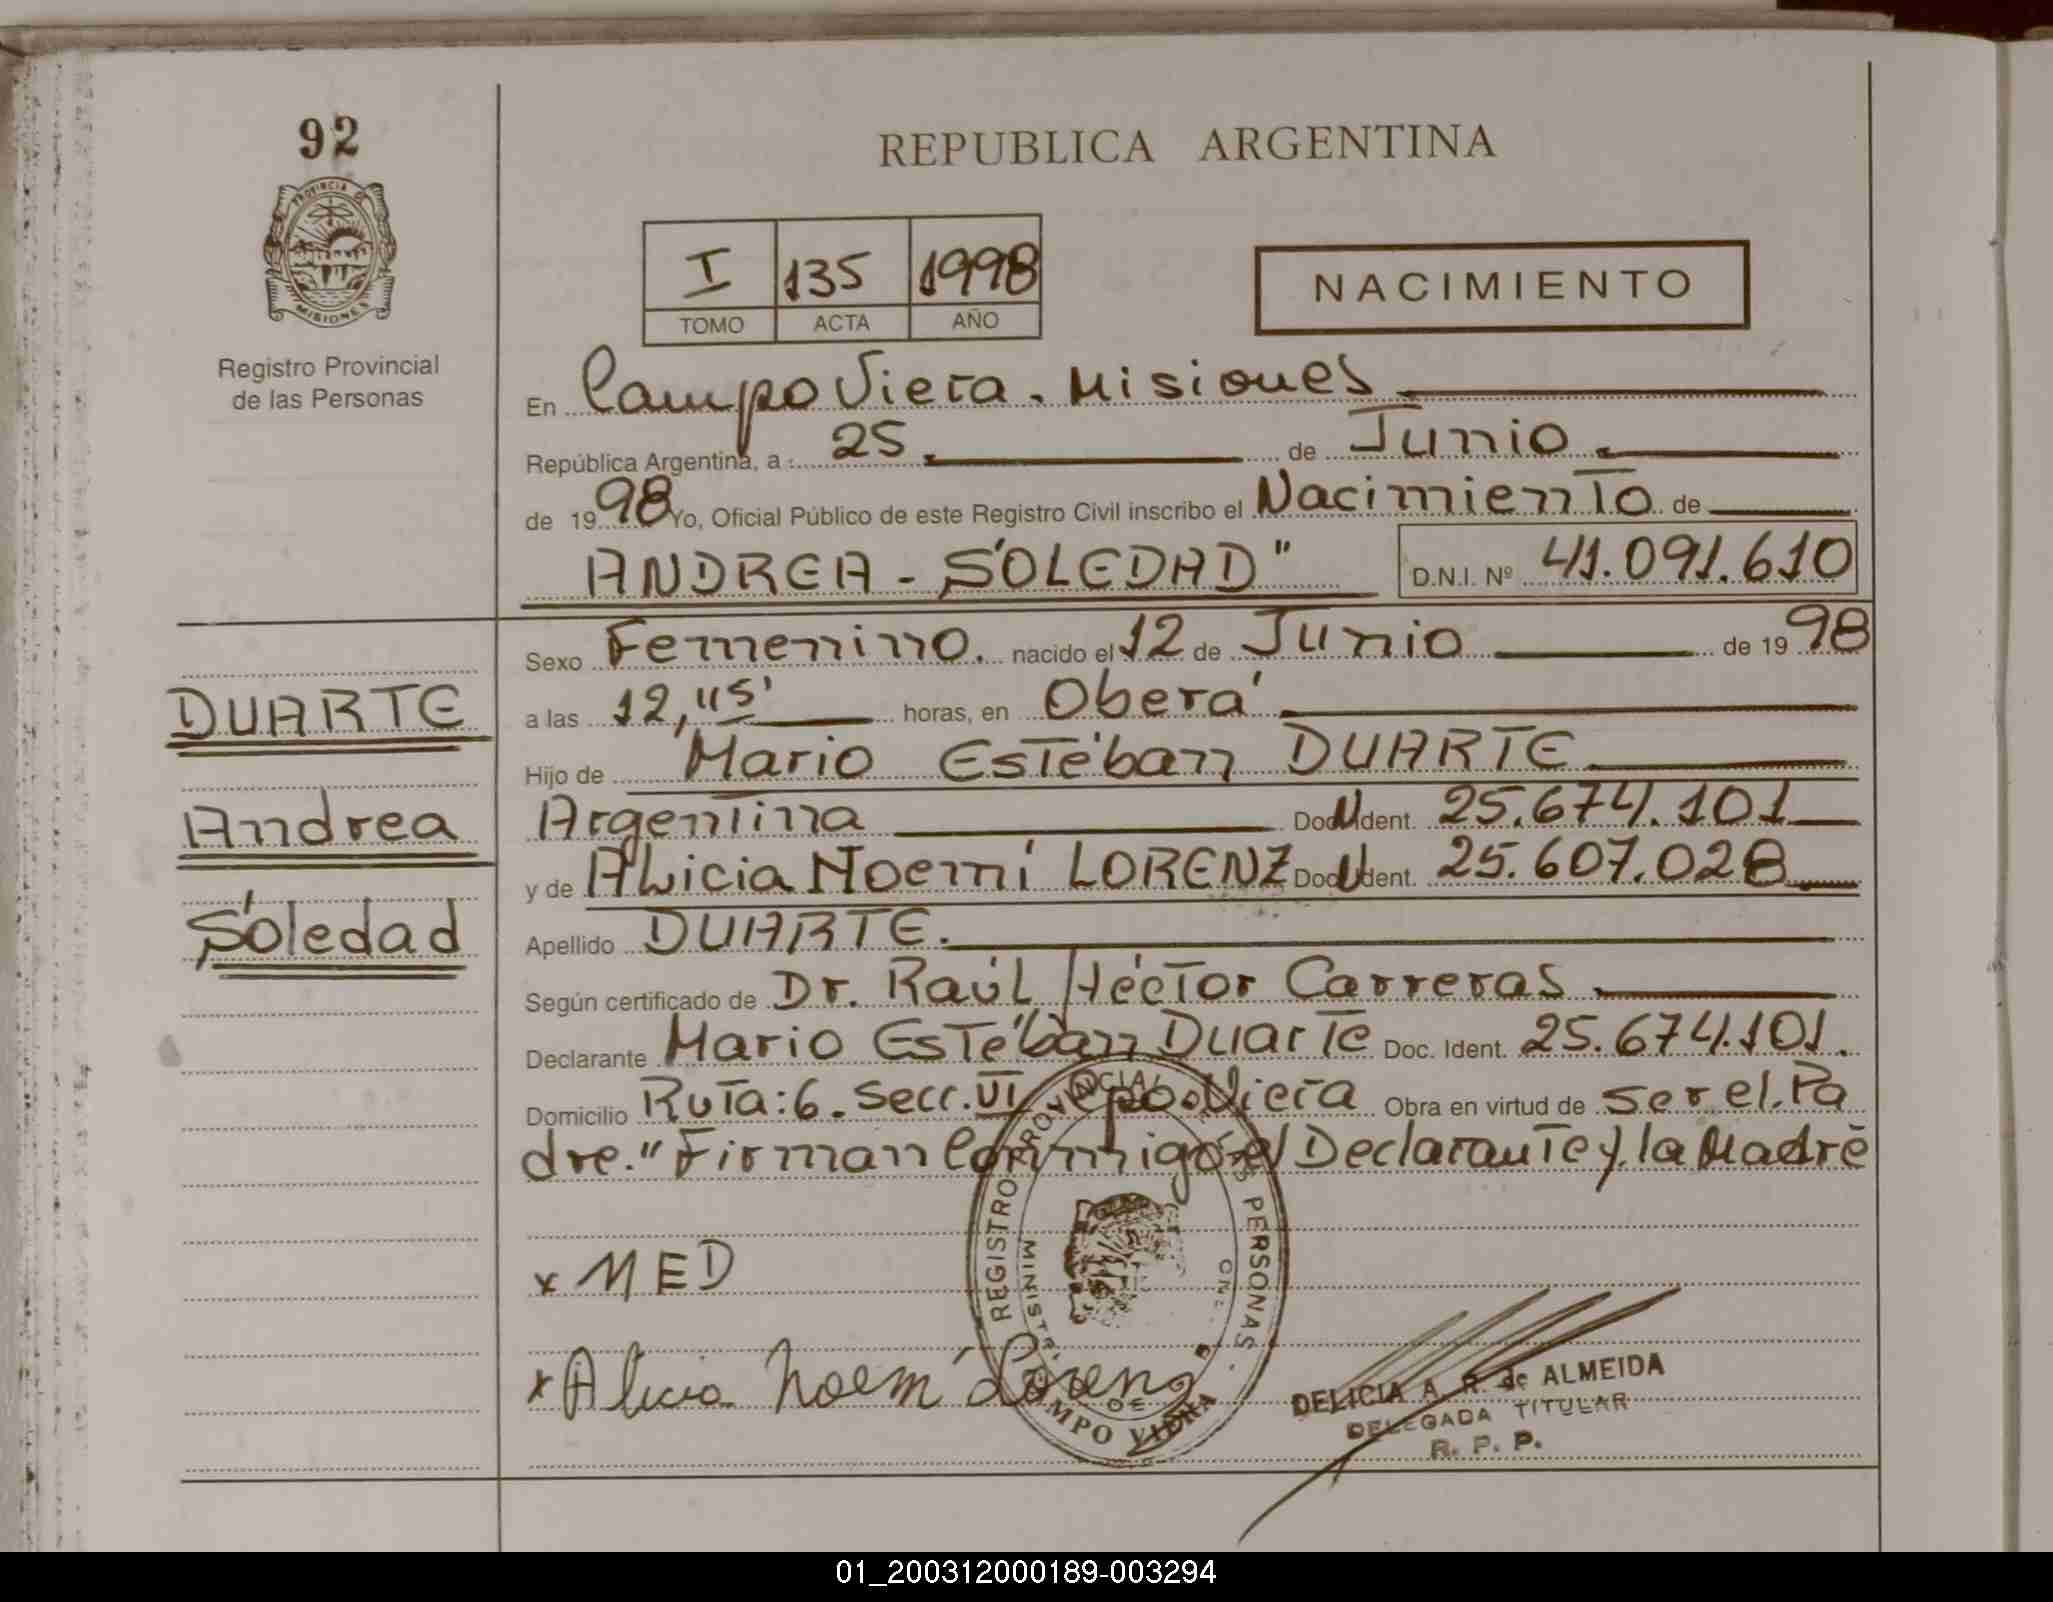 92
PROVINCIA DE
MISIONES
Registro Provincial
de las Personas
REPUBLICA ARGENTINA
I 135 1998
TOMO ACTA AÑO
NACIMIENTO
En Campo Viera. Misiones
República Argentina, a : 25 de Junio.
de 1998 Yo, Oficial Público de este Registro Civil inscribo el Nacimiento de
ANDREA - SOLEDAD" D.N.I. Nº 41.091.610
Sexo Femenino. nacido el 12 de Junio de 1998
a las 12,45' horas, en Oberá
Hijo de Mario Estéban DUARTE
Argentina Doc. Ident. 25.674.101
y de Alicia Noemí LORENZ Doc. Ident. 25.607.028
Apellido DUARTE.
Según certificado de Dr. Raúl Héctor Carreras
Declarante Mario Estéban Duarte Doc. Ident. 25.674.101.
Domicilio Ruta: 6. Secc. VI Cpo. Viera Obra en virtud de ser el Pa
dre." Firman Conmigo el Declarante y la Madre
DUARTE
Andrea
Soledad
x MED
x Alicia Noemí Lorenz
REGISTRO PROVINCIAL DE LAS PERSONAS
CAMPO VIERA
DELICIA A. R. de ALMEIDA
DELEGADA TITULAR
R. P. P.
01_200312000189-003294